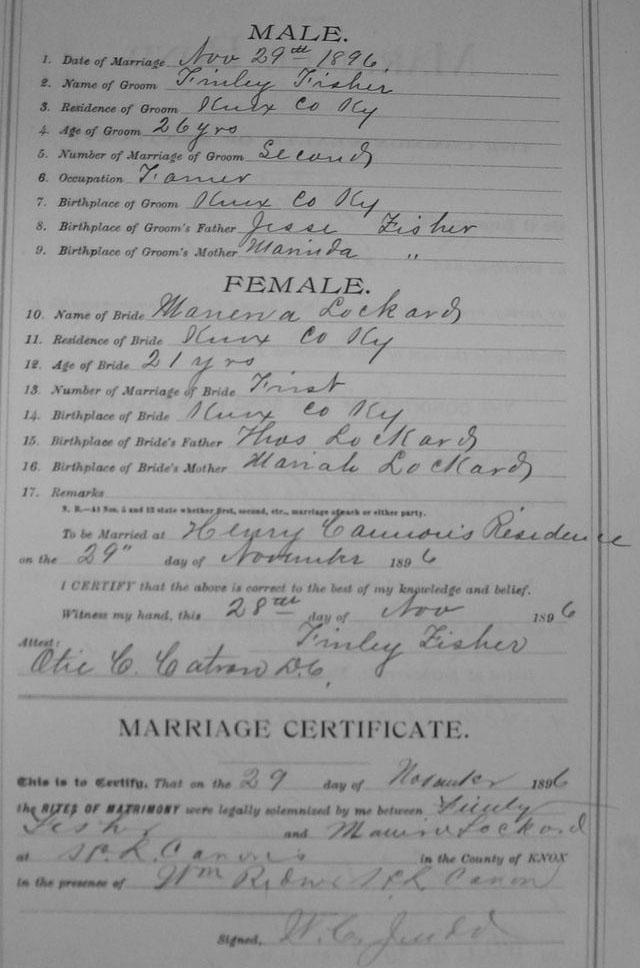 MALE.
1. Date of Marriage Nov 29th 1896
2. Name of Groom Finley Fisher
3. Residence of Groom Knox Co Ky
4. Age of Groom 26 yrs
5. Number of Marriage of Groom Second
6. Occupation Farmer
7. Birthplace of Groom Knox Co Ky
8. Birthplace of Groom's Father Jesse Fisher
9. Birthplace of Groom's Mother "
FEMALE.
10. Name of Bride Lockard
11. Residence of Bride Knox Co Ky
12. Age of Bride 21 yrs
13. Number of Marriage of Bride First
14. Birthplace of Bride Knox Co Ky
15. Birthplace of Bride's Father Thos Lockard
16. Birthplace of Bride's Mother Mariah Lockard
17. Remarks
N. B.—At Nos. 5 and 13 state whether first, second, etc., marriage of each or either party.
To be Married at Henry Cannon's Residence
on the 29" day of November 1896
I CERTIFY that the above is correct to the best of my knowledge and belief.
Witness my hand, this 28th day of Nov 1896
Finley Fisher
Attest:
Otie C. Catron D.C.
MARRIAGE CERTIFICATE.
This is to Certify, That on the 29 day of November 1896
the RITES OF MATRIMONY were legally solemnized by me between Finley
Fisher and Lockard
at Canon's in the County of KNOX
in the presence of Wm Canon
Signed, W. C. Judd